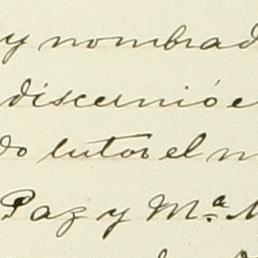 y nombrad
discernió e
do tutor el n
Paz y Mª. M